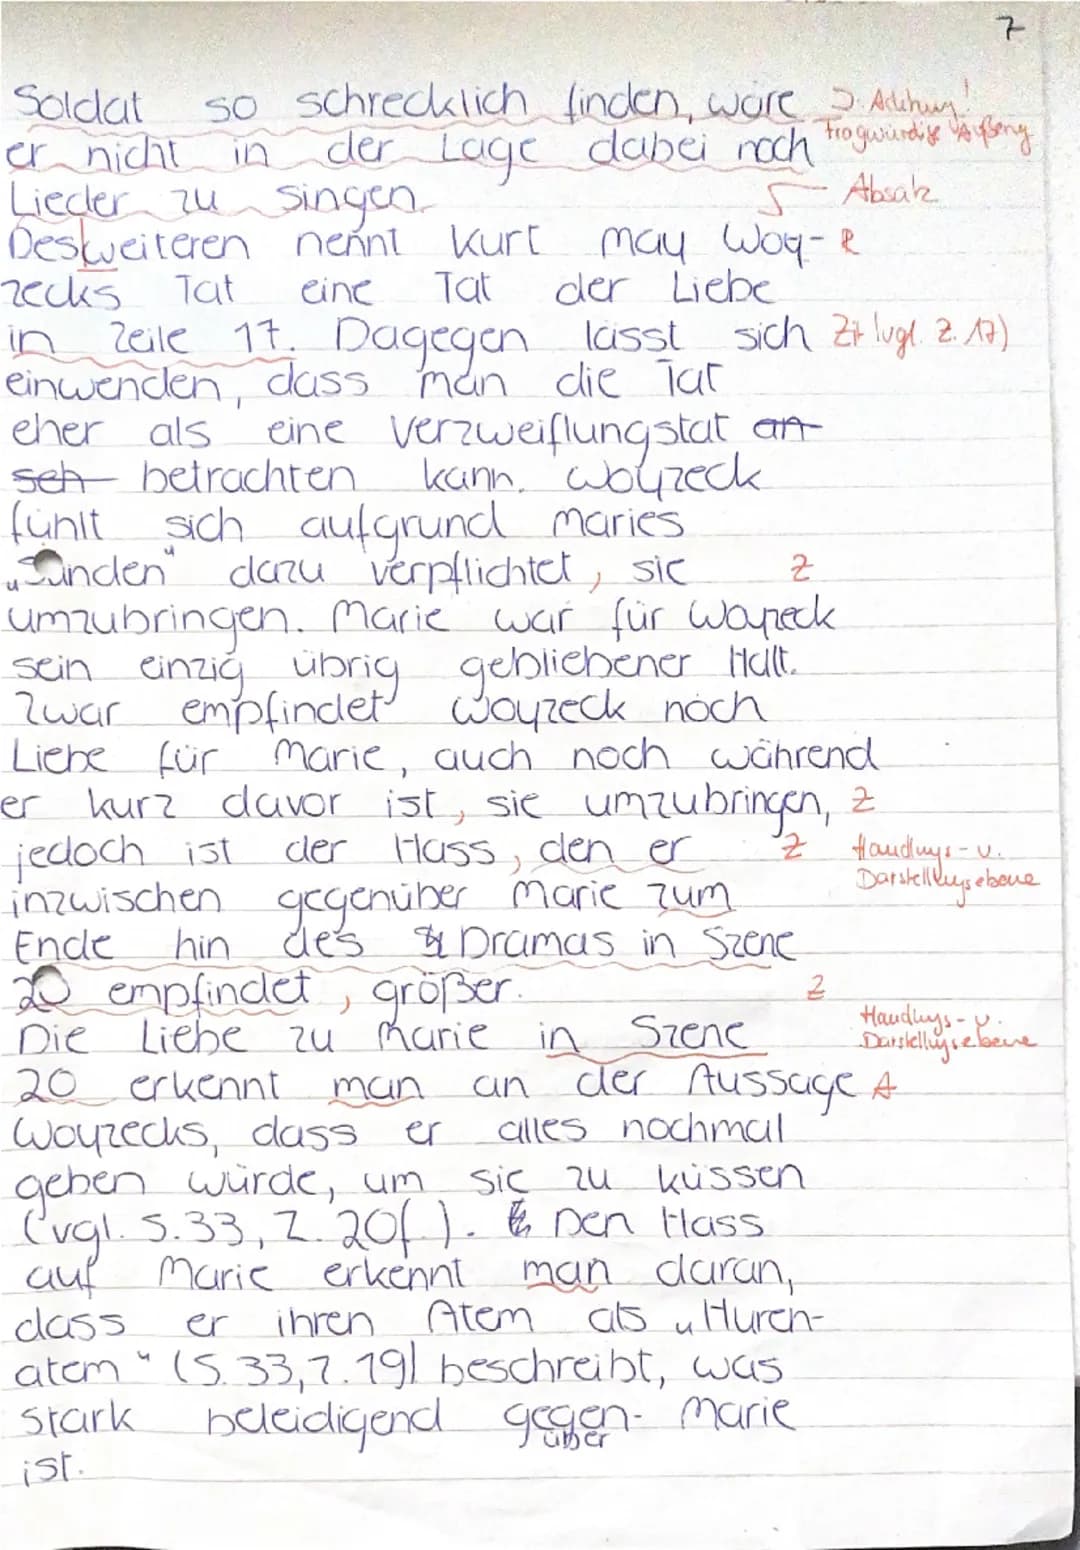 7
Soldat so schrecklich finden, wäre Achtung!
er nicht in der Lage dabei noch Fragwürdige
Lieder zu singen. Absatz
Desweiteren nennt Kurt May Woy- R
zecks Tat eine Tat der Liebe
in Zeile 17. Dagegen lässt sich Zit (vgl. Z. 17)
einwenden, dass man die Tat
eher als eine Verzweiflungstat an
seh betrachten kann. Woyzeck
fühlt sich aufgrund Maries
„Sünden“ dazu verpflichtet, sie Z
umzubringen. Marie war für Woyzeck
sein einzig übrig gebliebener Halt.
Zwar empfindet Woyzeck noch
Liebe für Marie, auch noch während
er kurz davor ist, sie umzubringen, Z
jedoch ist der Hass, den er Z Handlungs- u.
Darstellungsebene
inzwischen gegenüber Marie zum
Ende hin des Dramas in Szene
20 empfindet, größer. Z
Die Liebe zu Marie in Szene Handlungs- u.
Darstellungsebene
20 erkennt man an der Aussage A
Woyzecks, dass er alles nochmal
geben würde, um sie zu küssen
(vgl. S.33, Z. 20f.). Den Hass
auf Marie erkennt man daran,
dass er ihren Atem als „Huren-
atem“ (S. 33, Z. 19) beschreibt, was
stark beleidigend gegen- Marie
über
ist.